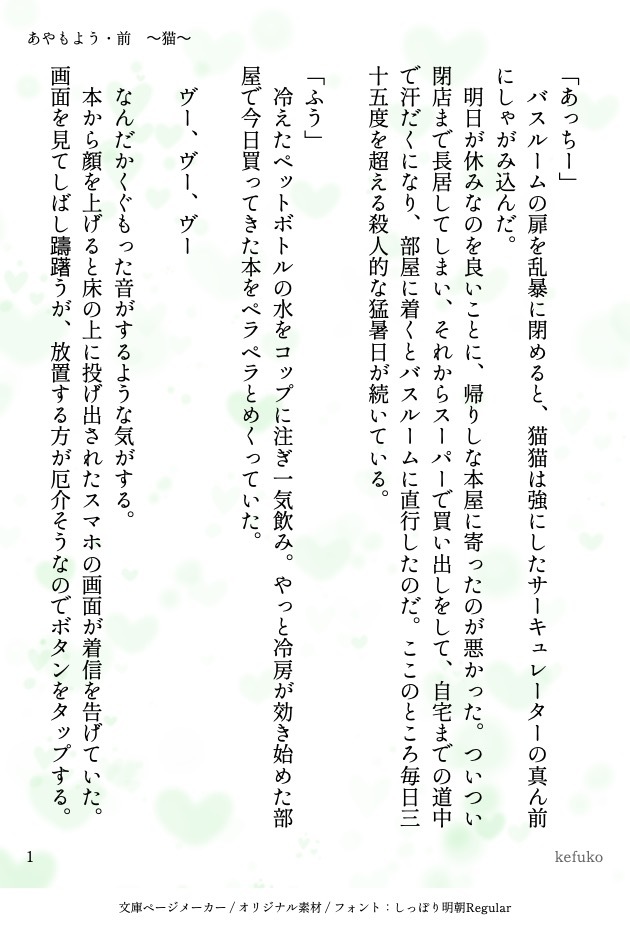 あやもよう・前　～猫～
「あっちー」
　バスルームの扉を乱暴に閉めると、猫猫は強にしたサーキュレーターの真ん前
にしゃがみ込んだ。
　明日が休みなのを良いことに、帰りしな本屋に寄ったのが悪かった。ついつい
閉店まで長居してしまい、それからスーパーで買い出しをして、自宅までの道中
で汗だくになり、部屋に着くとバスルームに直行したのだ。ここのところ毎日三
十五度を超える殺人的な猛暑日が続いている。
「ふう」
　冷えたペットボトルの水をコップに注ぎ一気飲み。やっと冷房が効き始めた部
屋で今日買ってきた本をペラペラとめくっていた。
　ヴー、ヴー、ヴー
　なんだかくぐもった音がするような気がする。
　本から顔を上げると床の上に投げ出されたスマホの画面が着信を告げていた。
画面を見てしばし躊躇うが、放置する方が厄介そうなのでボタンをタップする。
1
kefuko
文庫ページメーカー / オリジナル素材 / フォント：しっぽり明朝Regular